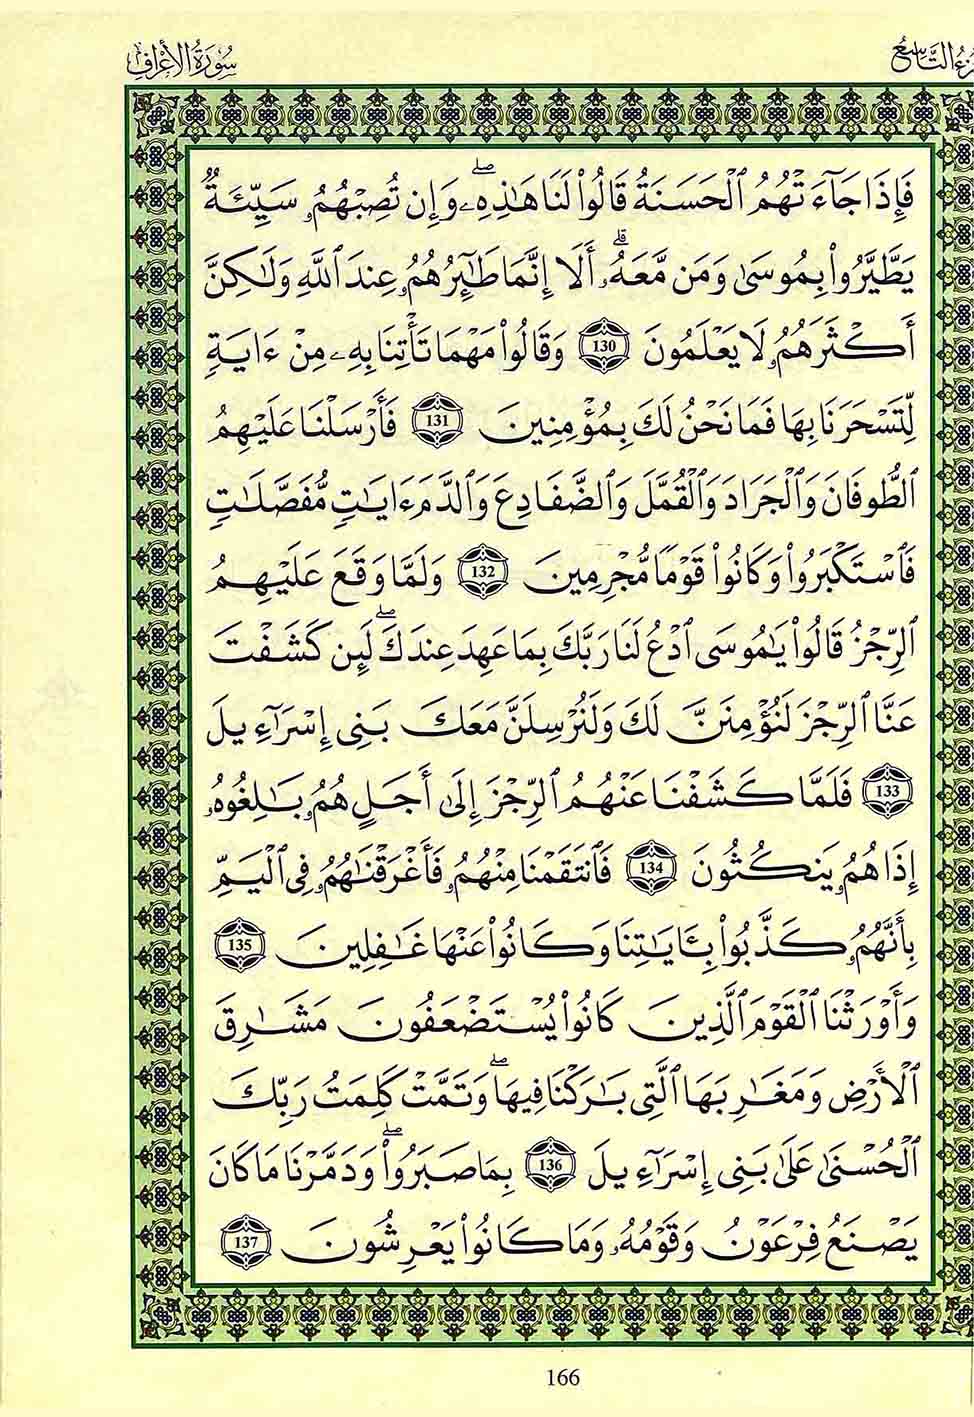 سُورَةُ الأَعْرَافِ
التَّاسِعُ
فَإِذَا جَآءَتْهُمُ ٱلْحَسَنَةُ قَالُوا۟ لَنَا هَٰذِهِۦ ۖ وَإِن تُصِبْهُمُۥ سَيِّئَةٌ
يَطَّيَّرُوا۟ بِمُوسَىٰ وَمَن مَّعَهُۥٓ ۗ أَلَا إِنَّمَا طَٰٓئِرُهُمُۥ عِندَ ٱللَّهِ وَلَٰكِنَّ
أَكْثَرَهُمُۥ لَا يَعْلَمُونَ 130 وَقَالُوا۟ مَهْمَا تَأْتِنَا بِهِۦ مِنْ ءَايَةٍ
لِّتَسْحَرَنَا بِهَا فَمَا نَحْنُ لَكَ بِمُؤْمِنِينَ 131 فَأَرْسَلْنَا عَلَيْهِمُ
ٱلطُّوفَانَ وَٱلْجَرَادَ وَٱلْقُمَّلَ وَٱلضَّفَادِعَ وَٱلدَّمَ ءَايَٰتٍ مُّفَصَّلَٰتٍ
فَٱسْتَكْبَرُوا۟ وَكَانُوا۟ قَوْمًا مُّجْرِمِينَ 132 وَلَمَّا وَقَعَ عَلَيْهِمُ
ٱلرِّجْزُ قَالُوا۟ يَٰمُوسَى ٱدْعُ لَنَا رَبَّكَ بِمَا عَهِدَ عِندَكَ ۖ لَئِن كَشَفْتَ
عَنَّا ٱلرِّجْزَ لَنُؤْمِنَنَّ لَكَ وَلَنُرْسِلَنَّ مَعَكَ بَنِى إِسْرَآءِيلَ
133 فَلَمَّا كَشَفْنَا عَنْهُمُ ٱلرِّجْزَ إِلَىٰٓ أَجَلٍ هُمُۥ بَٰلِغُوهُۥ
إِذَا هُمُۥ يَنكُثُونَ 134 فَٱنتَقَمْنَا مِنْهُمُۥ فَأَغْرَقْنَٰهُمُۥ فِى ٱلْيَمِّ
بِأَنَّهُمُۥ كَذَّبُوا۟ بِـَٔايَٰتِنَا وَكَانُوا۟ عَنْهَا غَٰفِلِينَ 135
وَأَوْرَثْنَا ٱلْقَوْمَ ٱلَّذِينَ كَانُوا۟ يُسْتَضْعَفُونَ مَشَٰرِقَ
ٱلْأَرْضِ وَمَغَٰرِبَهَا ٱلَّتِى بَٰرَكْنَا فِيهَا ۖ وَتَمَّتْ كَلِمَتُ رَبِّكَ
ٱلْحُسْنَىٰ عَلَىٰ بَنِى إِسْرَآءِيلَ 136 بِمَا صَبَرُوا۟ ۖ وَدَمَّرْنَا مَا كَانَ
يَصْنَعُ فِرْعَوْنُ وَقَوْمُهُۥ وَمَا كَانُوا۟ يَعْرِشُونَ 137
166